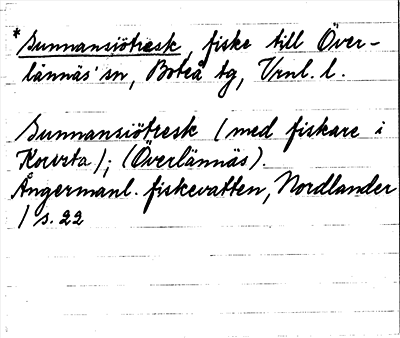 *Sunnansiötresk, fiske till Över-
lännäs' sn, Boteå tg, Vrnl. l.
Sunnansiötresk (med fiskare i
Korvta); (Överlännäs).
Ångermanl. fiskevatten, Nordlander
/ s. 22